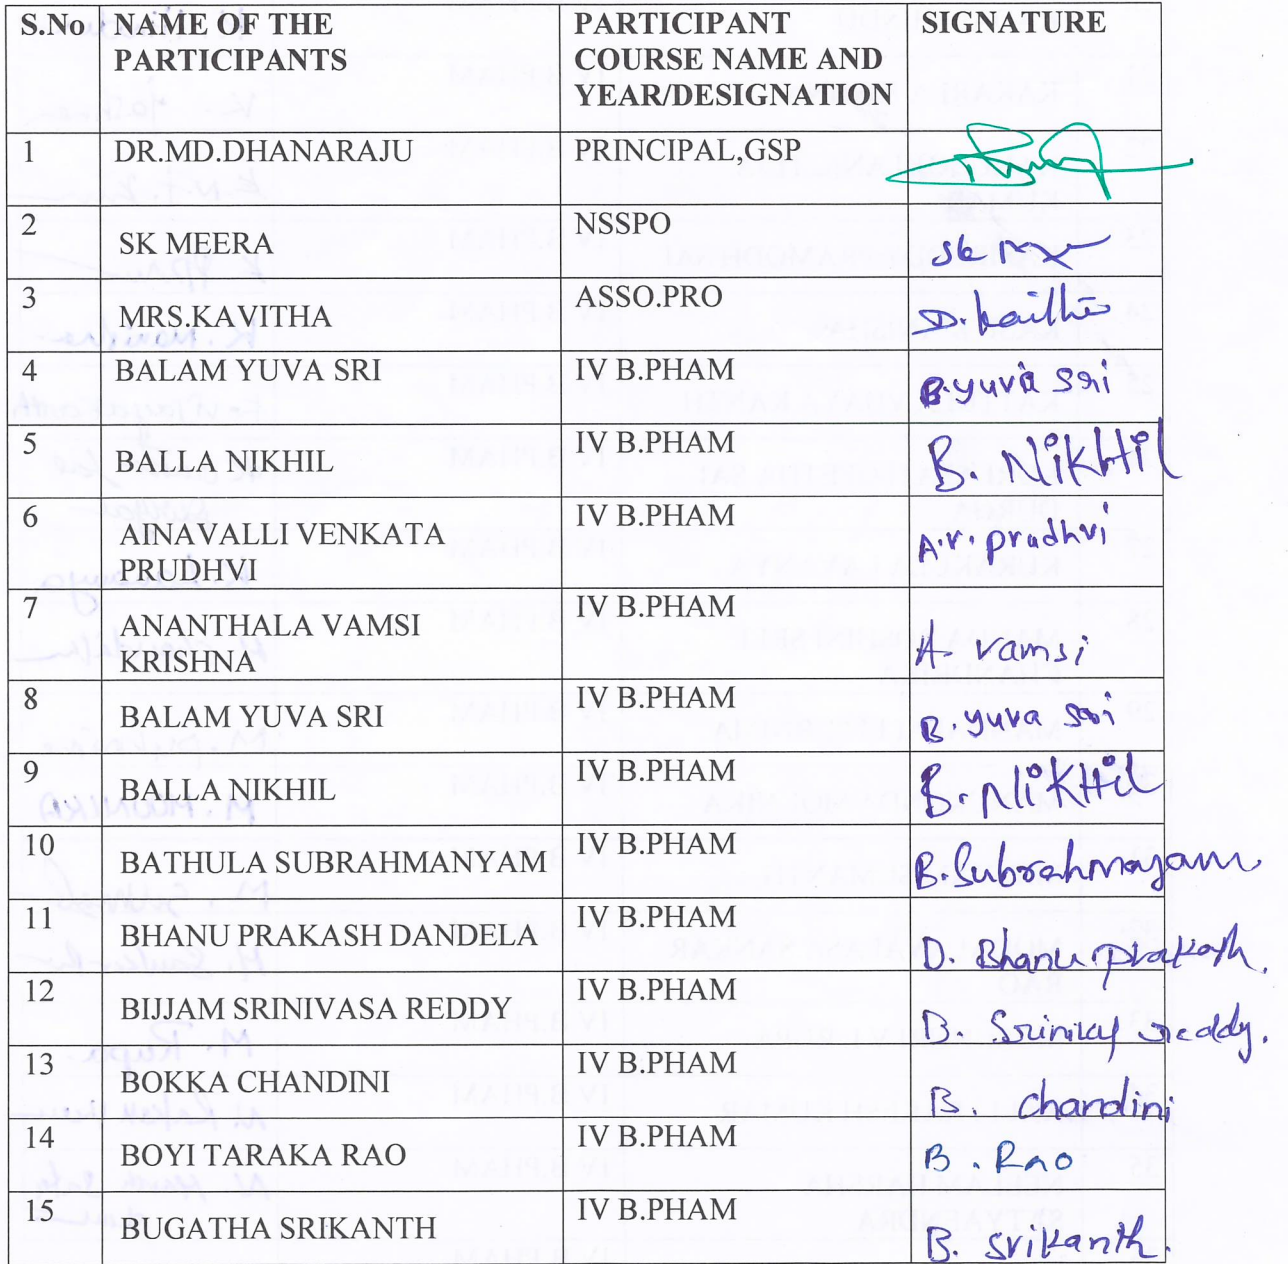 S.No NAME OF THE PARTICIPANTS PARTICIPANT COURSE NAME AND YEAR/DESIGNATION SIGNATURE
1 DR.MD.DHANARAJU PRINCIPAL,GSP
2 SK MEERA NSSPO
3 MRS.KAVITHA ASSO.PRO
4 BALAM YUVA SRI IV B.PHAM B.yuva Sri
5 BALLA NIKHIL IV B.PHAM B. NiKHil
6 AINAVALLI VENKATA PRUDHVI IV B.PHAM A.V. prudhvi
7 ANANTHALA VAMSI KRISHNA IV B.PHAM A. vamsi
8 BALAM YUVA SRI IV B.PHAM B. yuva Sri
9 BALLA NIKHIL IV B.PHAM B. NiKHil
10 BATHULA SUBRAHMANYAM IV B.PHAM B. Subrahmayam
11 BHANU PRAKASH DANDELA IV B.PHAM D. Bhanu prakash.
12 BIJJAM SRINIVASA REDDY IV B.PHAM B. Srinivas reddy.
13 BOKKA CHANDINI IV B.PHAM B. chandini
14 BOYI TARAKA RAO IV B.PHAM B. Rao
15 BUGATHA SRIKANTH IV B.PHAM B. srikanth.